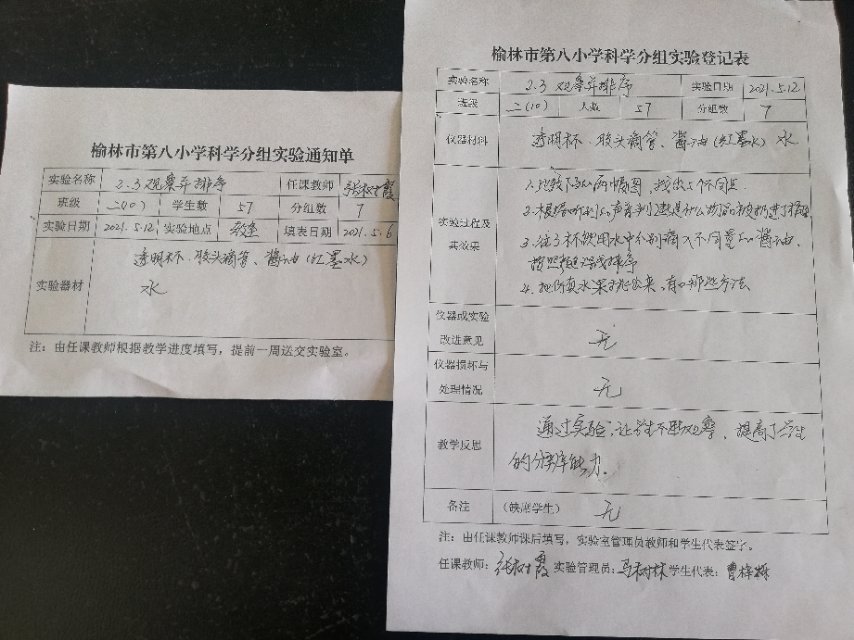 榆林市第八小学科学分组实验通知单
实验名称 2.3 观察并排序 任课教师 张树霞
班级 二(10) 学生数 57 分组数 7
实验日期 2021.5.12 实验地点 教室 填表日期 2021.5.6
实验器材 透明杯、胶头滴管、酱油(红墨水)
水
注：由任课教师根据教学进度填写，提前一周送交实验室。
榆林市第八小学科学分组实验登记表
实验名称 2.3 观察并排序 实验日期 2021.5.12
班级 二(10) 人数 57 分组数 7
仪器材料 透明杯、胶头滴管、酱油(红墨水) 水
实验过程及
其效果
1.比较下面两幅图，找出5个不同点.
2.根据听到的声音判断是什么物品被
3.往3杯饮用水中分别滴入不同量的酱油，
按照颜色深浅排序
4.把仿真水果 出来，有哪些方法
仪器或实验
改进意见 无
仪器损坏与
处理情况 无
教学反思 通过实验，让学生不断观察，提高了学生
的分辨能力。
备注 (缺席学生) 无
注：由任课教师课后填写，实验室管理员教师和学生代表签字。
任课教师：张树霞 实验管理员：马树林 学生代表：曹梓